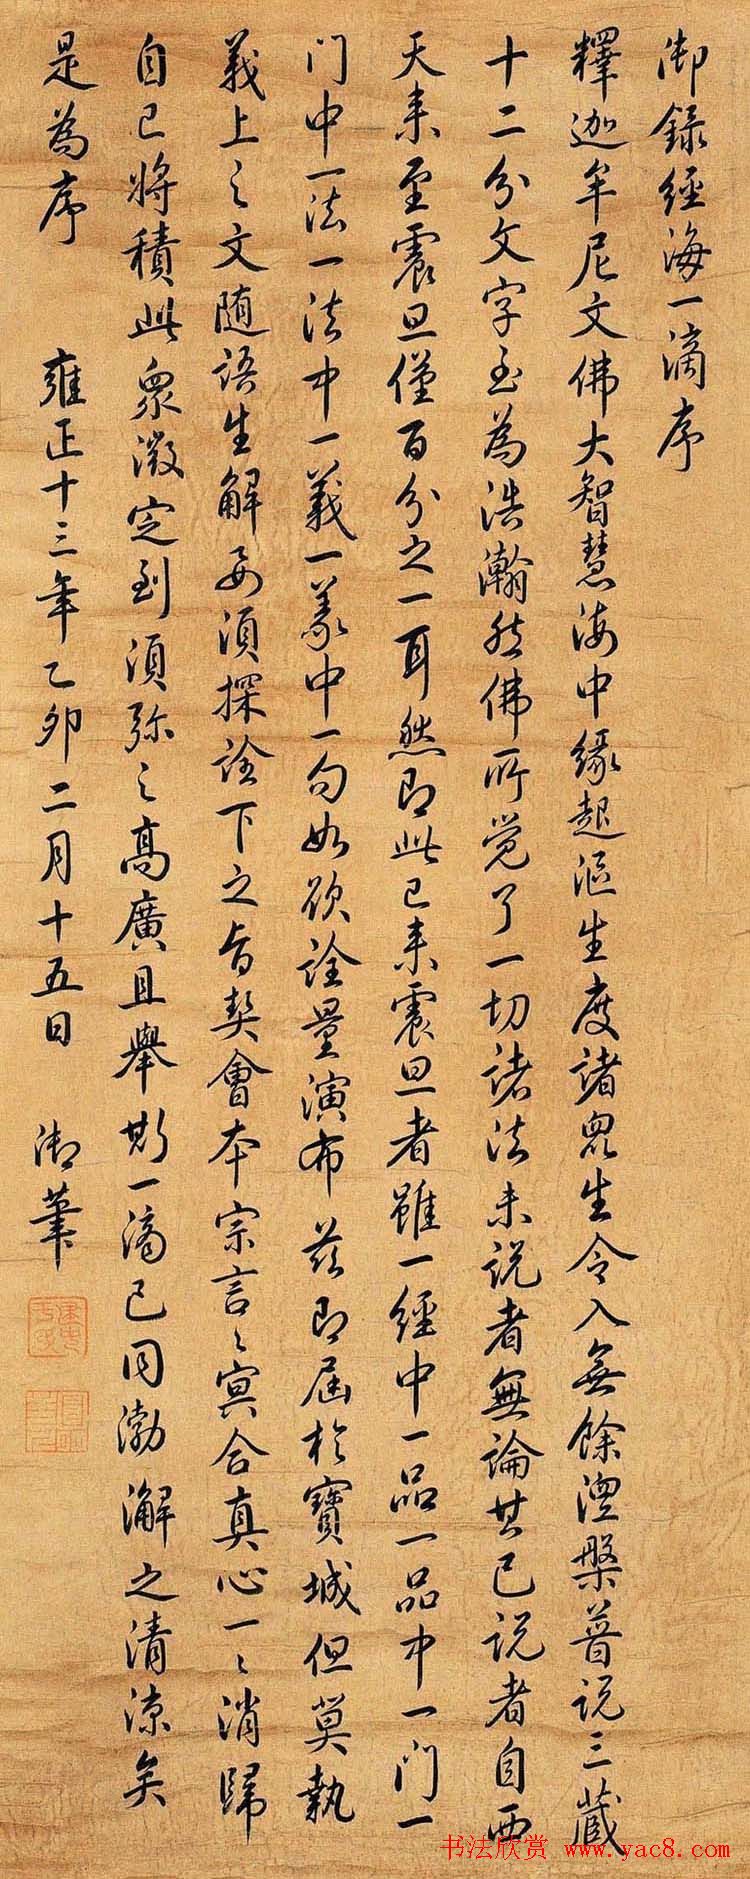 御録經海一滴序
釋迦牟尼文佛大智慧海中緣起漚生度諸眾生令入無餘涅槃普説三藏
十二分文字至為浩瀚然佛所覺了一切諸法未説者無論其已説者自西
天来至震旦僅百分之一耳然即此已来震旦者雖一經中一品一品中一门一
门中一法一法中一義一義中一句如欲詮量演布茲即屆於寶城但莫執
義上之文随語生解要須探詮下之旨契會本宗言〻冥合真心一〻消歸
自己將積此衆微定到須弥之高廣且舉斯一滴已同渤澥之清涼矣
是為序 雍正十三年乙卯二月十五日 御筆
书法欣赏 www.yac8.com